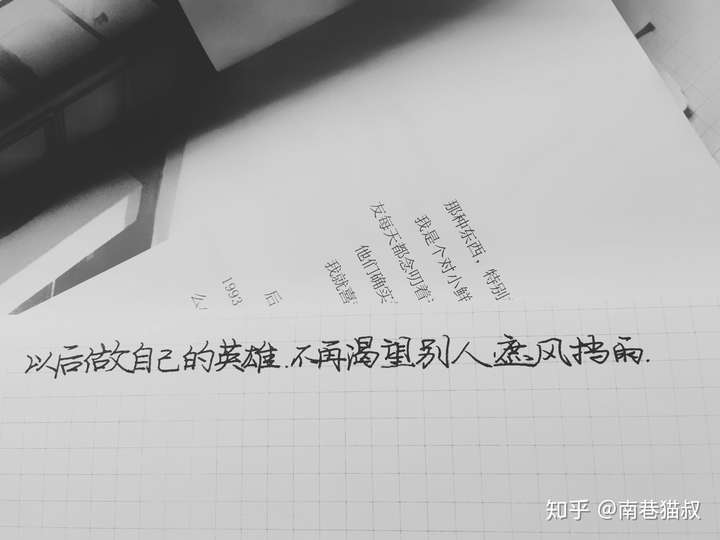 那种东西，特别
我是个对小鲜
友每天都念叨着
他们确实
我就喜
后
1993
么
以后做自己的英雄.不再渴望别人遮风挡雨.
知乎 @南巷猫叔